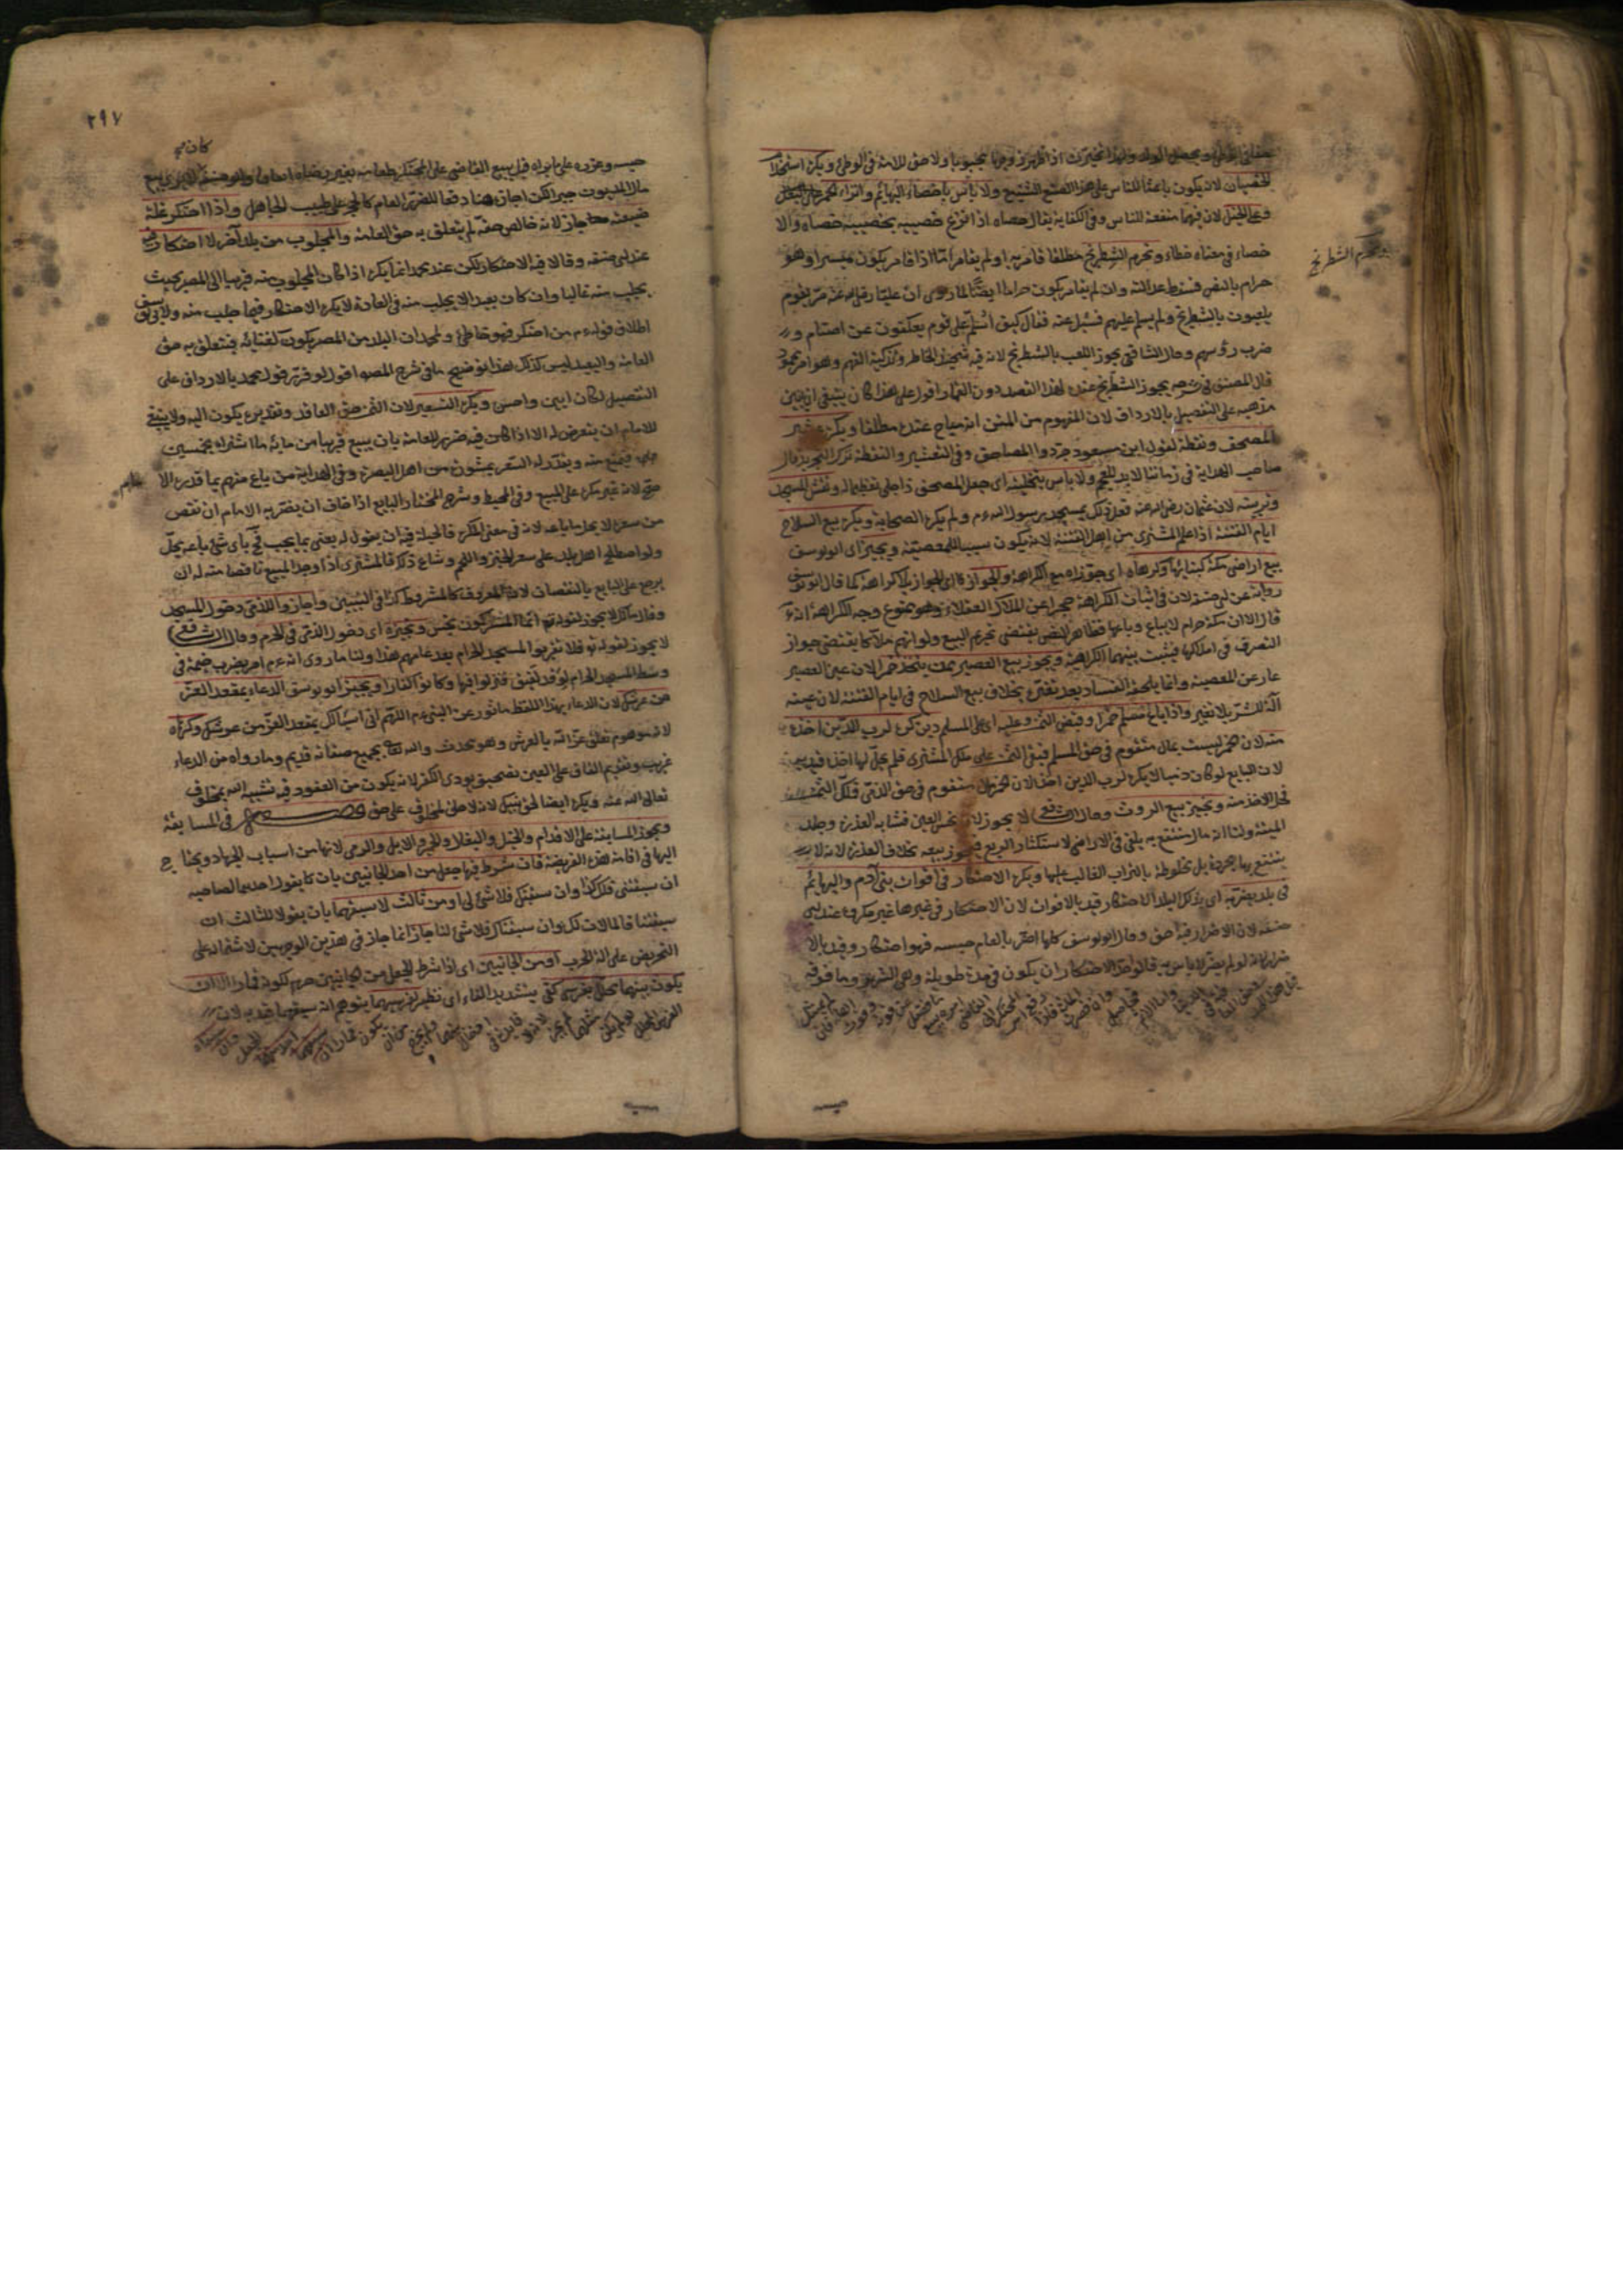 ويكره استخدام
الخصيان لانه يكون باعثا للناس على هذا الصنع الشنيع ولا بأس باخصاء البهائم وانزاء الحمر على الخيل
لان فيهما منفعة للناس وفي الكفاية يقال خصاه اذا نزع خصييه يخصيه خصاء والا
خصاء في معناه خطاء وتحرم الشطرنج مطلقا قامر به او لم يقامر اما اذا قامر يكون ميسرا وهو
حرام بالنص فسقط عدالته وان لم يقامر يكون حراما ايضا لما روى ان عليا رضى الله عنه مر بقوم
يلعبون بالشطرنج ولم يسلم عليهم فسئل عنه فقال كيف أسلم على قوم يعكفون عن اصنام و
ضرب رؤسهم وقال الشافعي يجوز اللعب بالشطرنج لانه فيه تشحيذ الخاطر وتذكية الفهم وهو امر محمود
قال المصنف في شرحه يجوز الشطرنج عنده لهذا القصد دون القمار اقول على هذا كان ينبغي ان يبين
مذهبه على التفصيل بالارداف لان المفهوم من المتن انه مباح عنده مطلقا ويكره تعشير
المصحف ونقطه لقول ابن مسعود جردوا المصاحف وفي التعشير والنقطة ترك التجريد قال
صاحب الهداية في زماننا لا بد للعجم ولا بأس بتحليته اى جعل المصحف ذا حلى تعظيما له ونقش المسجد
وتزيينه لان عثمان رضى الله عنه فعل ذلك بمسجد رسول الله ءم ولم ينكره الصحابة ويكره بيع السلاح
ايام الفتنة اذا علم المشترى من اهل الفتنة لانه يكون سببا للمعصية ويجيز اى ابو يوسف
بيع اراضى مكة كبنائها وكرهاه اى جوزاه مع الكراهة والجواز بلا كراهة كما قال ابو يوسف
رواية عن ابى حنيفة لان في اثبات الكراهة حجرا عن الملاك العقلاء وهو ممنوع وجه الكراهة انه ء
قال الا ان مكة حرام لا يباع رباعها فظاهر النص يقتضي تحريم البيع وكونهم ملاكا يقتضى جواز
التصرف في املاكها فيثبت بينهما الكراهة ويجوز بيع العصير ممن يتخذ خمرا لان عين العصير
عار عن المعصية وانما يلحقه الفساد بعد تغيره بخلاف بيع السلاح في ايام الفتنة لان عينه
آلة للشر بلا تغير واذا باع مسلم خمرا وقبض الثمن وعليه اى على المسلم دين كره لرب الدين اخذه
منه لان الخمر ليست بمال متقوم في حق المسلم فبقى الثمن على ملك المشترى فلم يحل لها اخذ
لان البايع لو كان ذميا لا يكره لرب الدين اخذه لان الخمر مال متقوم في حق الذمى فملك الثمن
فحل الاخذ منه ويجيز بيع الروث وقال الشافعي لا يجوز لانه نجس العين فشابه العذرة وجلد
الميتة ولنا انه مال منتفع به يلقى في الاراضى لاستكثار الريع فيجوز بيعه بخلاف العذرة لانه لا
ينتفع بها مجردة بل مخلوطة بالتراب الغالب عليها ويكره الاحتكار في اقوات بنى آدم والبهائم
في بلد يضر به اى بذلك البلد الاحتكار قيد بالاقوات لان الاحتكار في غيرها غير مكروه عند ابى
حنيفة لان الاضرار فيه اخف وقال ابو يوسف كلما اضر بالعام حبسه فهو احتكار وقيد بالا
ضرار لانه لو لم يضر لا بأس به قالوا هذا الاحتكار ان يكون في مدة طويلة وهى الشهر وما فوقه
تحريم الشطرنج
٢٩٧
كان
قيل يبيع القاضي على المحتكر طعامه بغير رضاه
مال المديون جبرا لكن اجازه هنا دفعا للضرر العام كالحجر على طبيب الجاهل واذا احتكر غلة
ضيعته جاز لانه خالص حقه لم يتعلق به حق العامة والمجلوب من بلد آخر لا احتكار فيه
عند ابى حنيفة وقالا فيه الاحتكار لكن عند محمد انما يكره اذا كان المجلوب منه قريبا الى المصر بحيث
يجلب منه غالبا وان كان بعيدا لا يجلب منه في العادة لا يكره الاحتكار فيما جلب منه ولابى يوسف
اطلاق قوله ءم من احتكر فهو خاطئ ولمحمد ان البلد من المصر يكون كفنائه فيتعلق به حق
العامة والبعيد ليس كذلك هذا توضيح ما في شرح المصنف اقول لو قرر قول محمد بالارداف على
التفصيل لكان ابين واحسن ويكره التسعير لان الثمن حق العاقد وتقديره يكون اليه ولا ينبغى
للامام ان يتعرض له الا اذا كان فيه ضرر للعامة بان يبيع قريبا من مائة ما اشتراه بخمسين
فيمنع منه ويقدر له السعر بمشورة من اهل البصرة وفي الهداية من باع منهم بما قدره الامام
صح لانه غير مكره على البيع وفي المحيط وشرح المختار البايع اذا خاف ان يضربه الامام ان نقص
من سعره لا يحل ما باعه لانه في معنى المكره فالحيلة فيه ان يقول له بعنى بما يجب فح باى شئ باعه يحل
ولو اصطلح اهل بلد على سعر الخبز واللحم وشاع ذلك فالمشترى اذا وجد المبيع ناقصا منه له ان
يرجع على البايع بالنقصان لان المعروف كالمشروط كذا في التبيين واجازوا للذمى دخول المسجد
وقال مالك لا يجوز لقوله تع انما المشركون نجس ويجيزه اى دخول الذمى في الحرم وقال الشافعي
لا يجوز لقوله تع فلا تقربوا المسجد الحرام بعد عامهم هذا ولنا ما روى انه ءم امر بضرب خيمة في
وسط المسجد الحرام لوفد ثقيف فنزلوا فيها وكانوا كفارا ويجيز ابو يوسف الدعاء بمقعد العز
من عرشك لان الدعاء بهذا اللفظ مأثور عن النبى ءم اللهم انى اسئلك بمقعد العز من عرشك وكرهاه
لانه موهم تعلق عز الله بالعرش وهو محدث والله تعالى بجميع صفاته قديم وما رواه من الدعاء
غريب وتقديم القاف على العين تصحيف يودى الكفر لانه يكون من القعود فيه تشبيه الله بمخلوق
تعالى الله عنه ويكره ايضا بحق نبيك لانه لا حق لمخلوق على حق فصل في المسابقة
ويجوز المسابقة على الاقدام والخيل والبغال والحمير والابل والرمى لانها من اسباب الجهاد ويحتاج
اليها في اقامة هذه الفريضة فان شرط فيها جعل من احد الجانبين بان كان يقول احدهما لصاحبه
ان سبقتنى فلك كذا وان سبقتك فلا شئ لى او من ثالث لاسبقهما بان يقولا للثالث ان
سبقتنا فالمالان لك وان سبقناك فلا شئ لنا جاز انما جاز في هذين الوجهين لاشتماله على
التحريض على آلة الحرب او من الجانبين اى اذا شرط الجعل من الجانبين حرم لكونه قمارا الا ان
يكون بينهما محلل بفرس كفى بتشديد الفاء اى نظير لفرسيهما يتوهم انه سبقهما قيد به لان